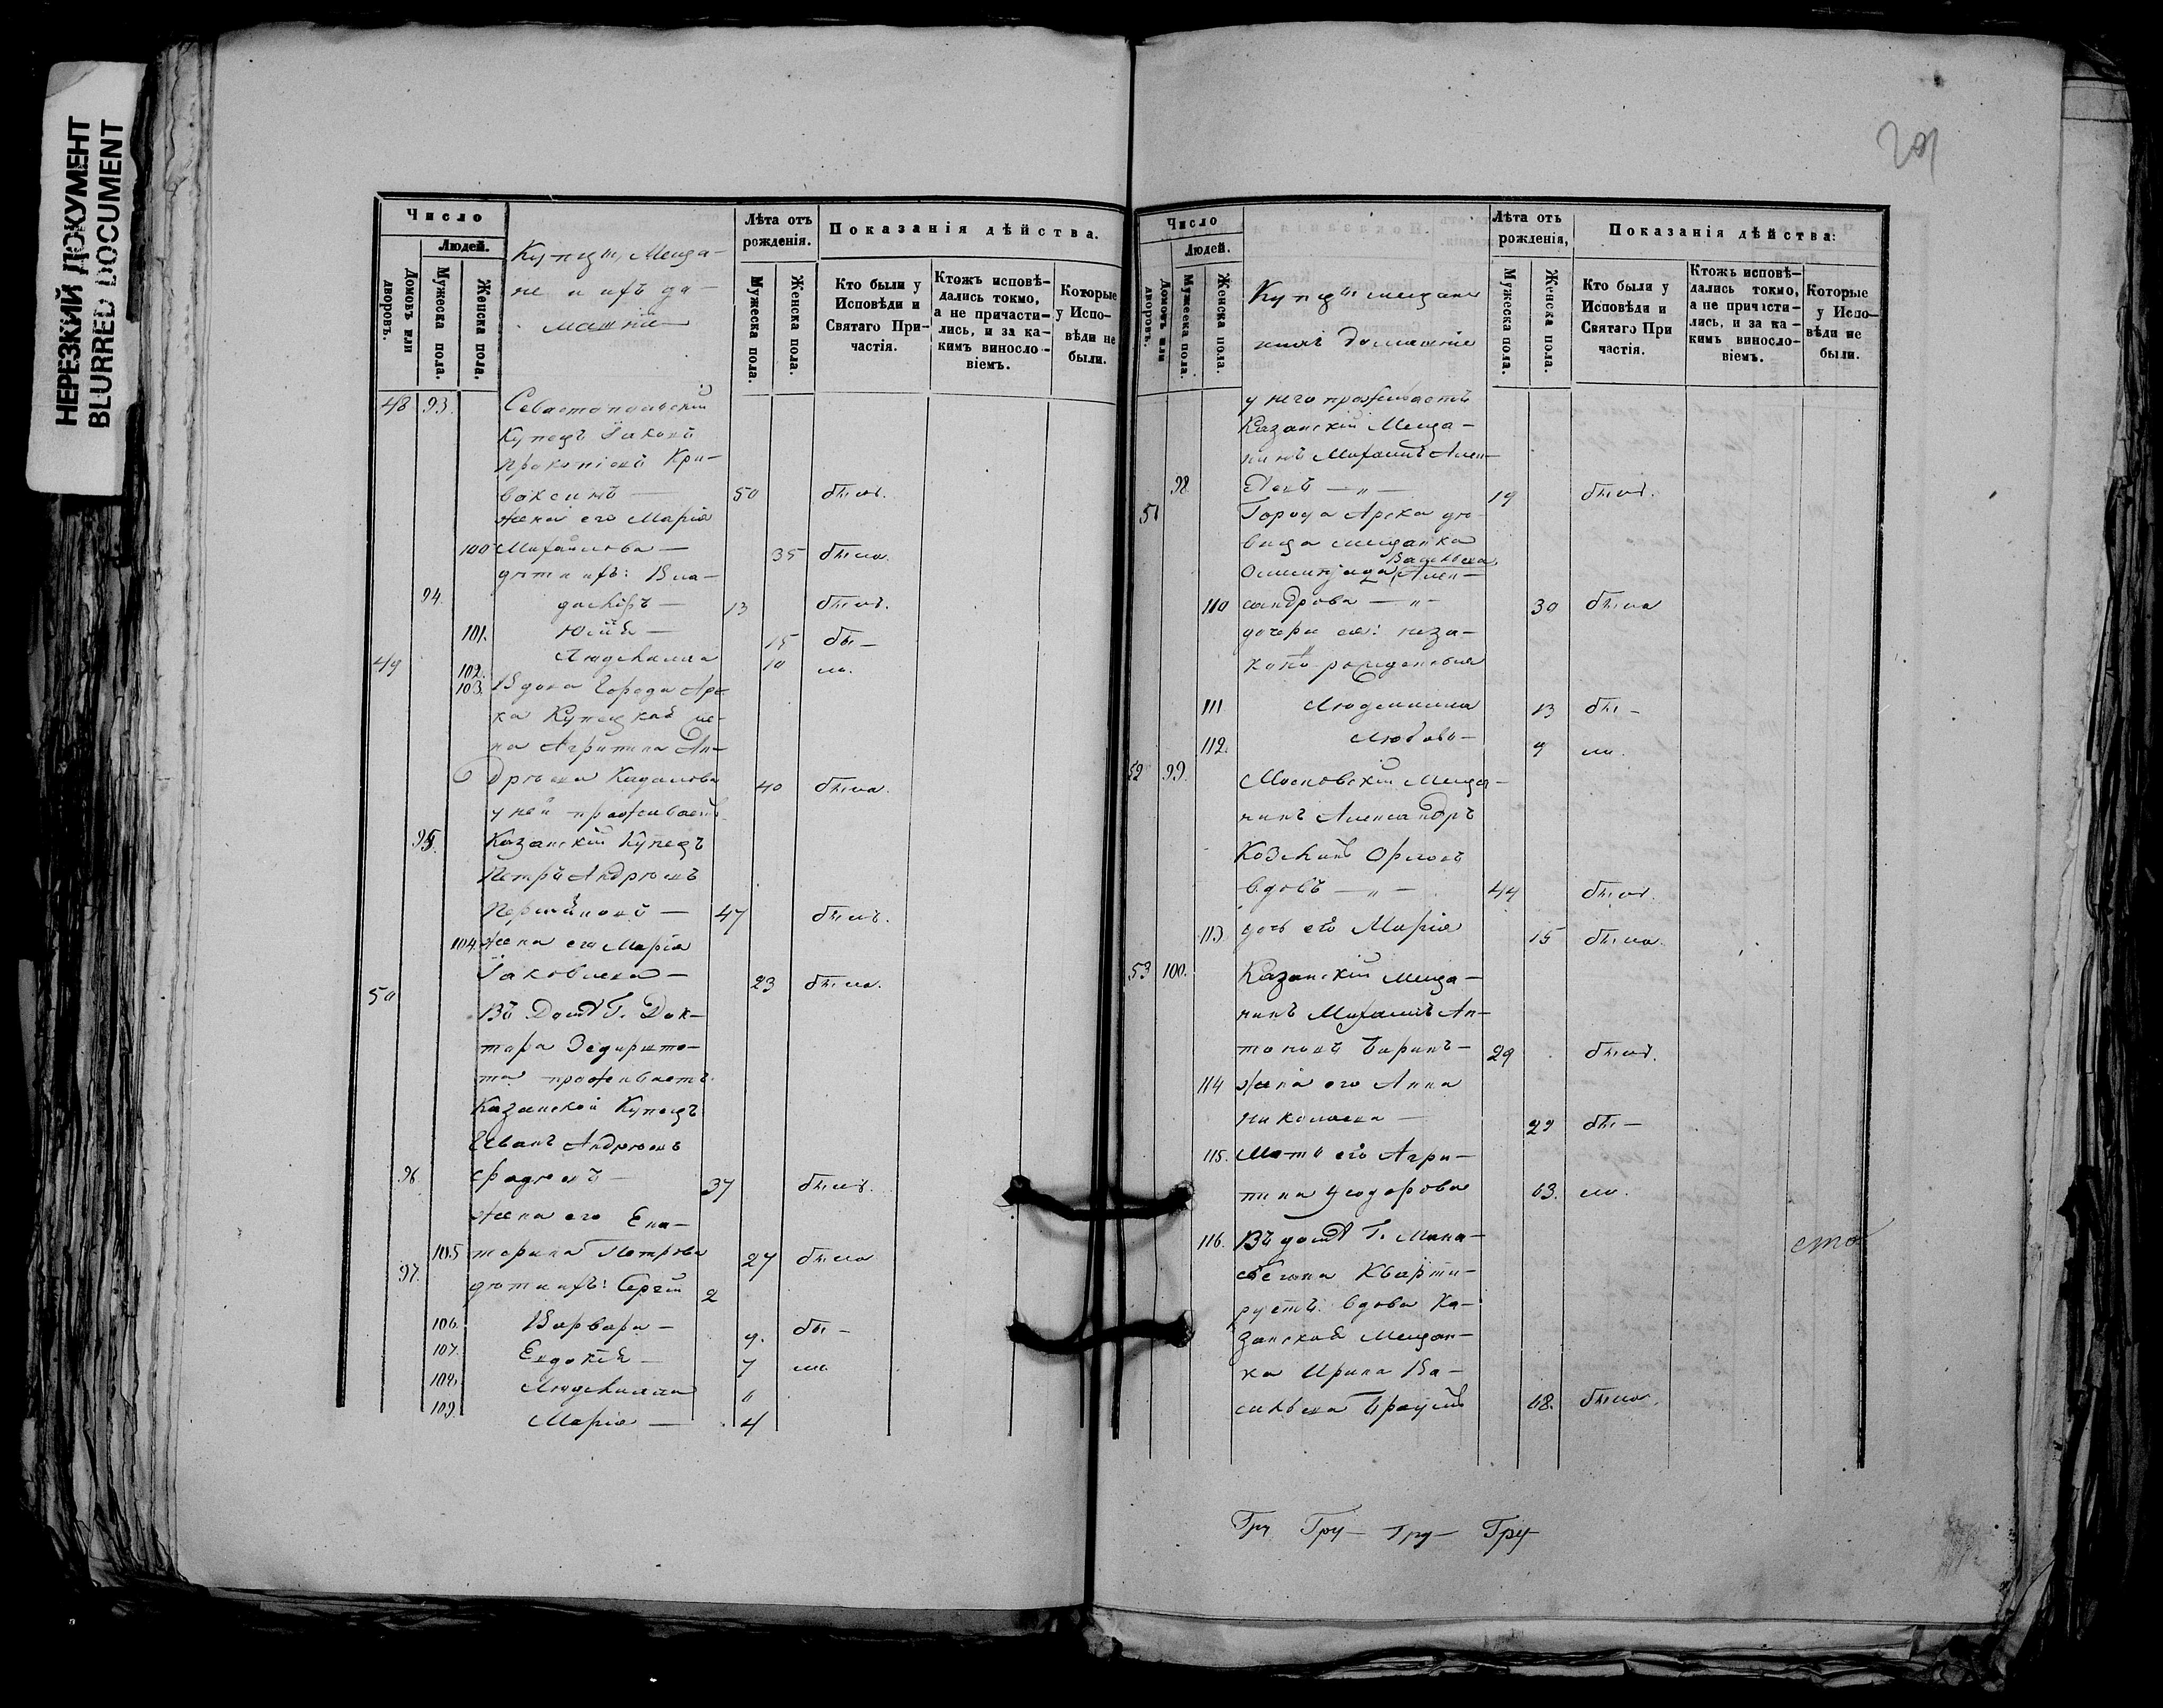 НЕРЕЗКИЙ ДОКУМЕНТ
BLURRED DOCUMENT
Число
Людей.
Домовъ или дворовъ.
Мужеска пола.
Женска пола.
Купцы, Меща-
не и ихъ до-
машніе
Лѣта отъ рожденія.
Мужеска пола.
Женска пола.
Показанія дѣйства.
Кто были у Исповѣди и Святаго При-частія.
Ктожъ исповѣ-дались токмо, а не причасти-лись, и за ка-кимъ винослo-віемъ.
Которые у Испо-вѣди не были.
48 93. Севастопольскій
Купецъ Іаковъ
Прокопіевъ Кри-
воксинъ — 50 былъ.
жена его Марія
100 Михайлова — 35 была.
дѣти ихъ: Вла-
94. диміръ — 13 былъ.
101. Юлія — 15 бы —
102. Людмилла 10 ла.
49 103. Вдова Города Арс-
ка Купецкая же-
на Агрипина Ан-
дреева 40 была.
у ней проживаетъ
95. Казанскій Купецъ
Петръ Андреевъ
47 былъ.
104. жена его Марія
Іаковлева — 23 была.
50 Въ Домѣ Г. Док-
тора
проживаетъ
Казанской Купецъ
Иванъ Андреевъ
96. Фадѣевъ — 37 былъ.
жена его Ека-
105 терина Петрова 27 была
97. дѣти ихъ: Сергій 2
106. Варвара — 9. бы —
107. Евдокія — 7 ла
108. Людмилла 6
109. Марія — 4
201
Число
Людей.
Домовъ или дворовъ.
Мужеска пола.
Женска пола.
Купцы мещане
и ихъ домашніе
Лѣта отъ рожденія,
Мужеска пола.
Женска пола.
Показанія дѣйства:
Кто были у Исповѣди и Святаго При частія.
Ктожъ исповѣ-дались токмо, а не причасти-лись, и за ка-кимъ винослo-віемъ.
Которые у Испо-вѣди не были.
у него проживаетъ
Казанскій Меща-
нинъ Михаилъ
98. 19 былъ.
51 Города Арска дѣ-
вица мещанка
Алек-
110 сандрова — „ — 30 была
дочери ея: неза-
конно-рожденныя
111 Людмилла 13 бы —
112. Любовь — 9 ла.
52 99. Московскій Меща-
нинъ Александръ
Козминъ Орловъ
вдовъ — „ — 44 былъ.
113. дочь его Марія 15 была.
53 100. Казанскій меща-
нинъ Михаилъ Ан-
тоновъ 29 былъ.
114 жена его Анна
Николаева — 29 бы —
115. Мать его Агри-
пина Ѳеодорова 63. ла.
116. Въ домѣ Г.
Кварти-
руетъ: вдова Ка-
занская Мещан-
ка Ирина Ва-
сильева 68. была.
Гру Гру — Гру — Гру